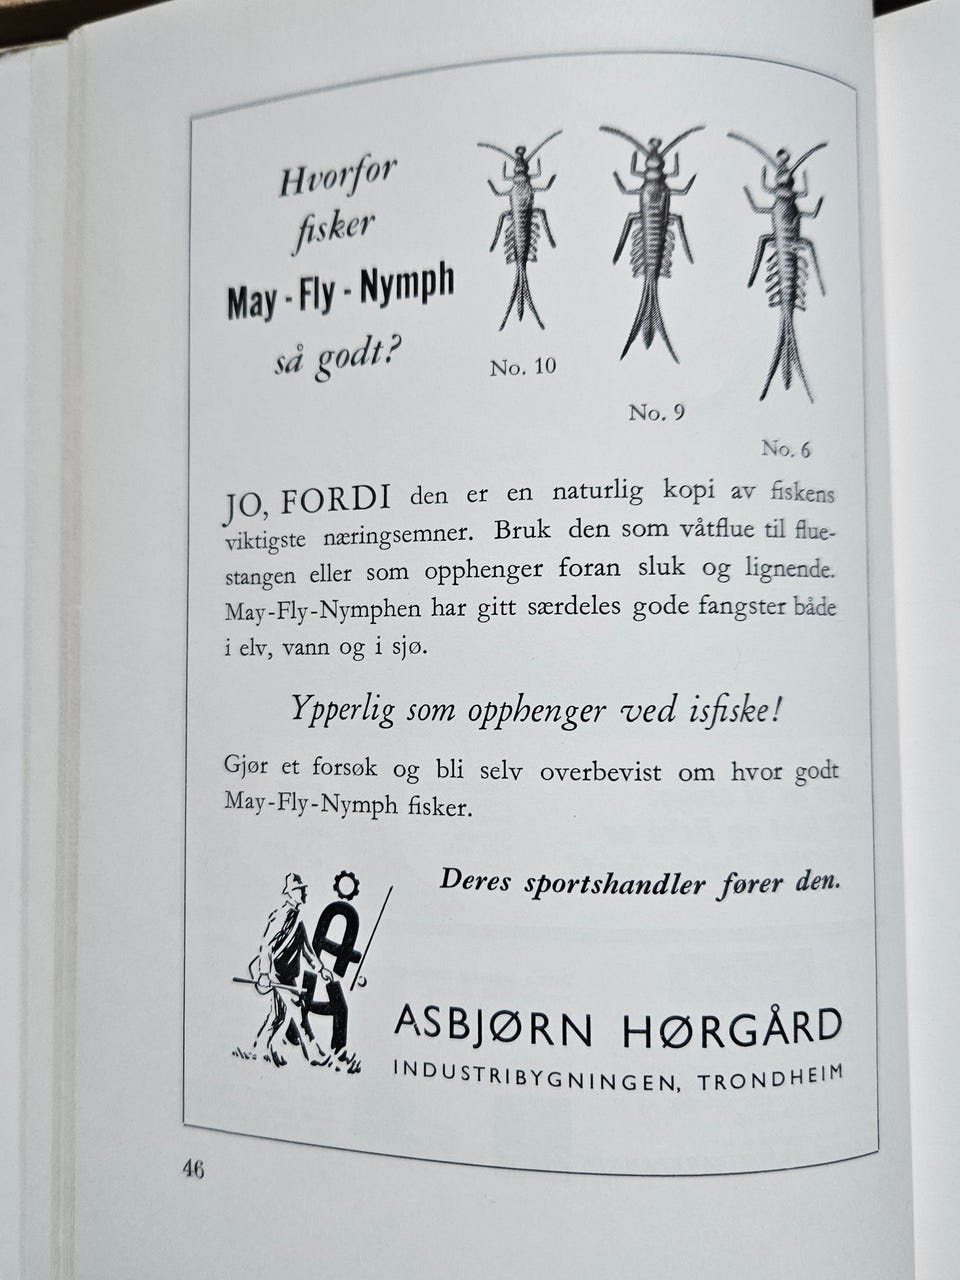 Hvorfor
fisker
May - Fly - Nymph
så godt?
No. 10
No. 9
No. 6
JO, FORDI den er en naturlig kopi av fiskens
viktigste næringsemner. Bruk den som våtflue til flue-
stangen eller som opphenger foran sluk og lignende.
May-Fly-Nymphen har gitt særdeles gode fangster både
i elv, vann og i sjø.
Ypperlig som opphenger ved isfiske!
Gjør et forsøk og bli selv overbevist om hvor godt
May-Fly-Nymph fisker.
Deres sportshandler fører den.
ÅH
ASBJØRN HØRGÅRD
INDUSTRIBYGNINGEN, TRONDHEIM
46